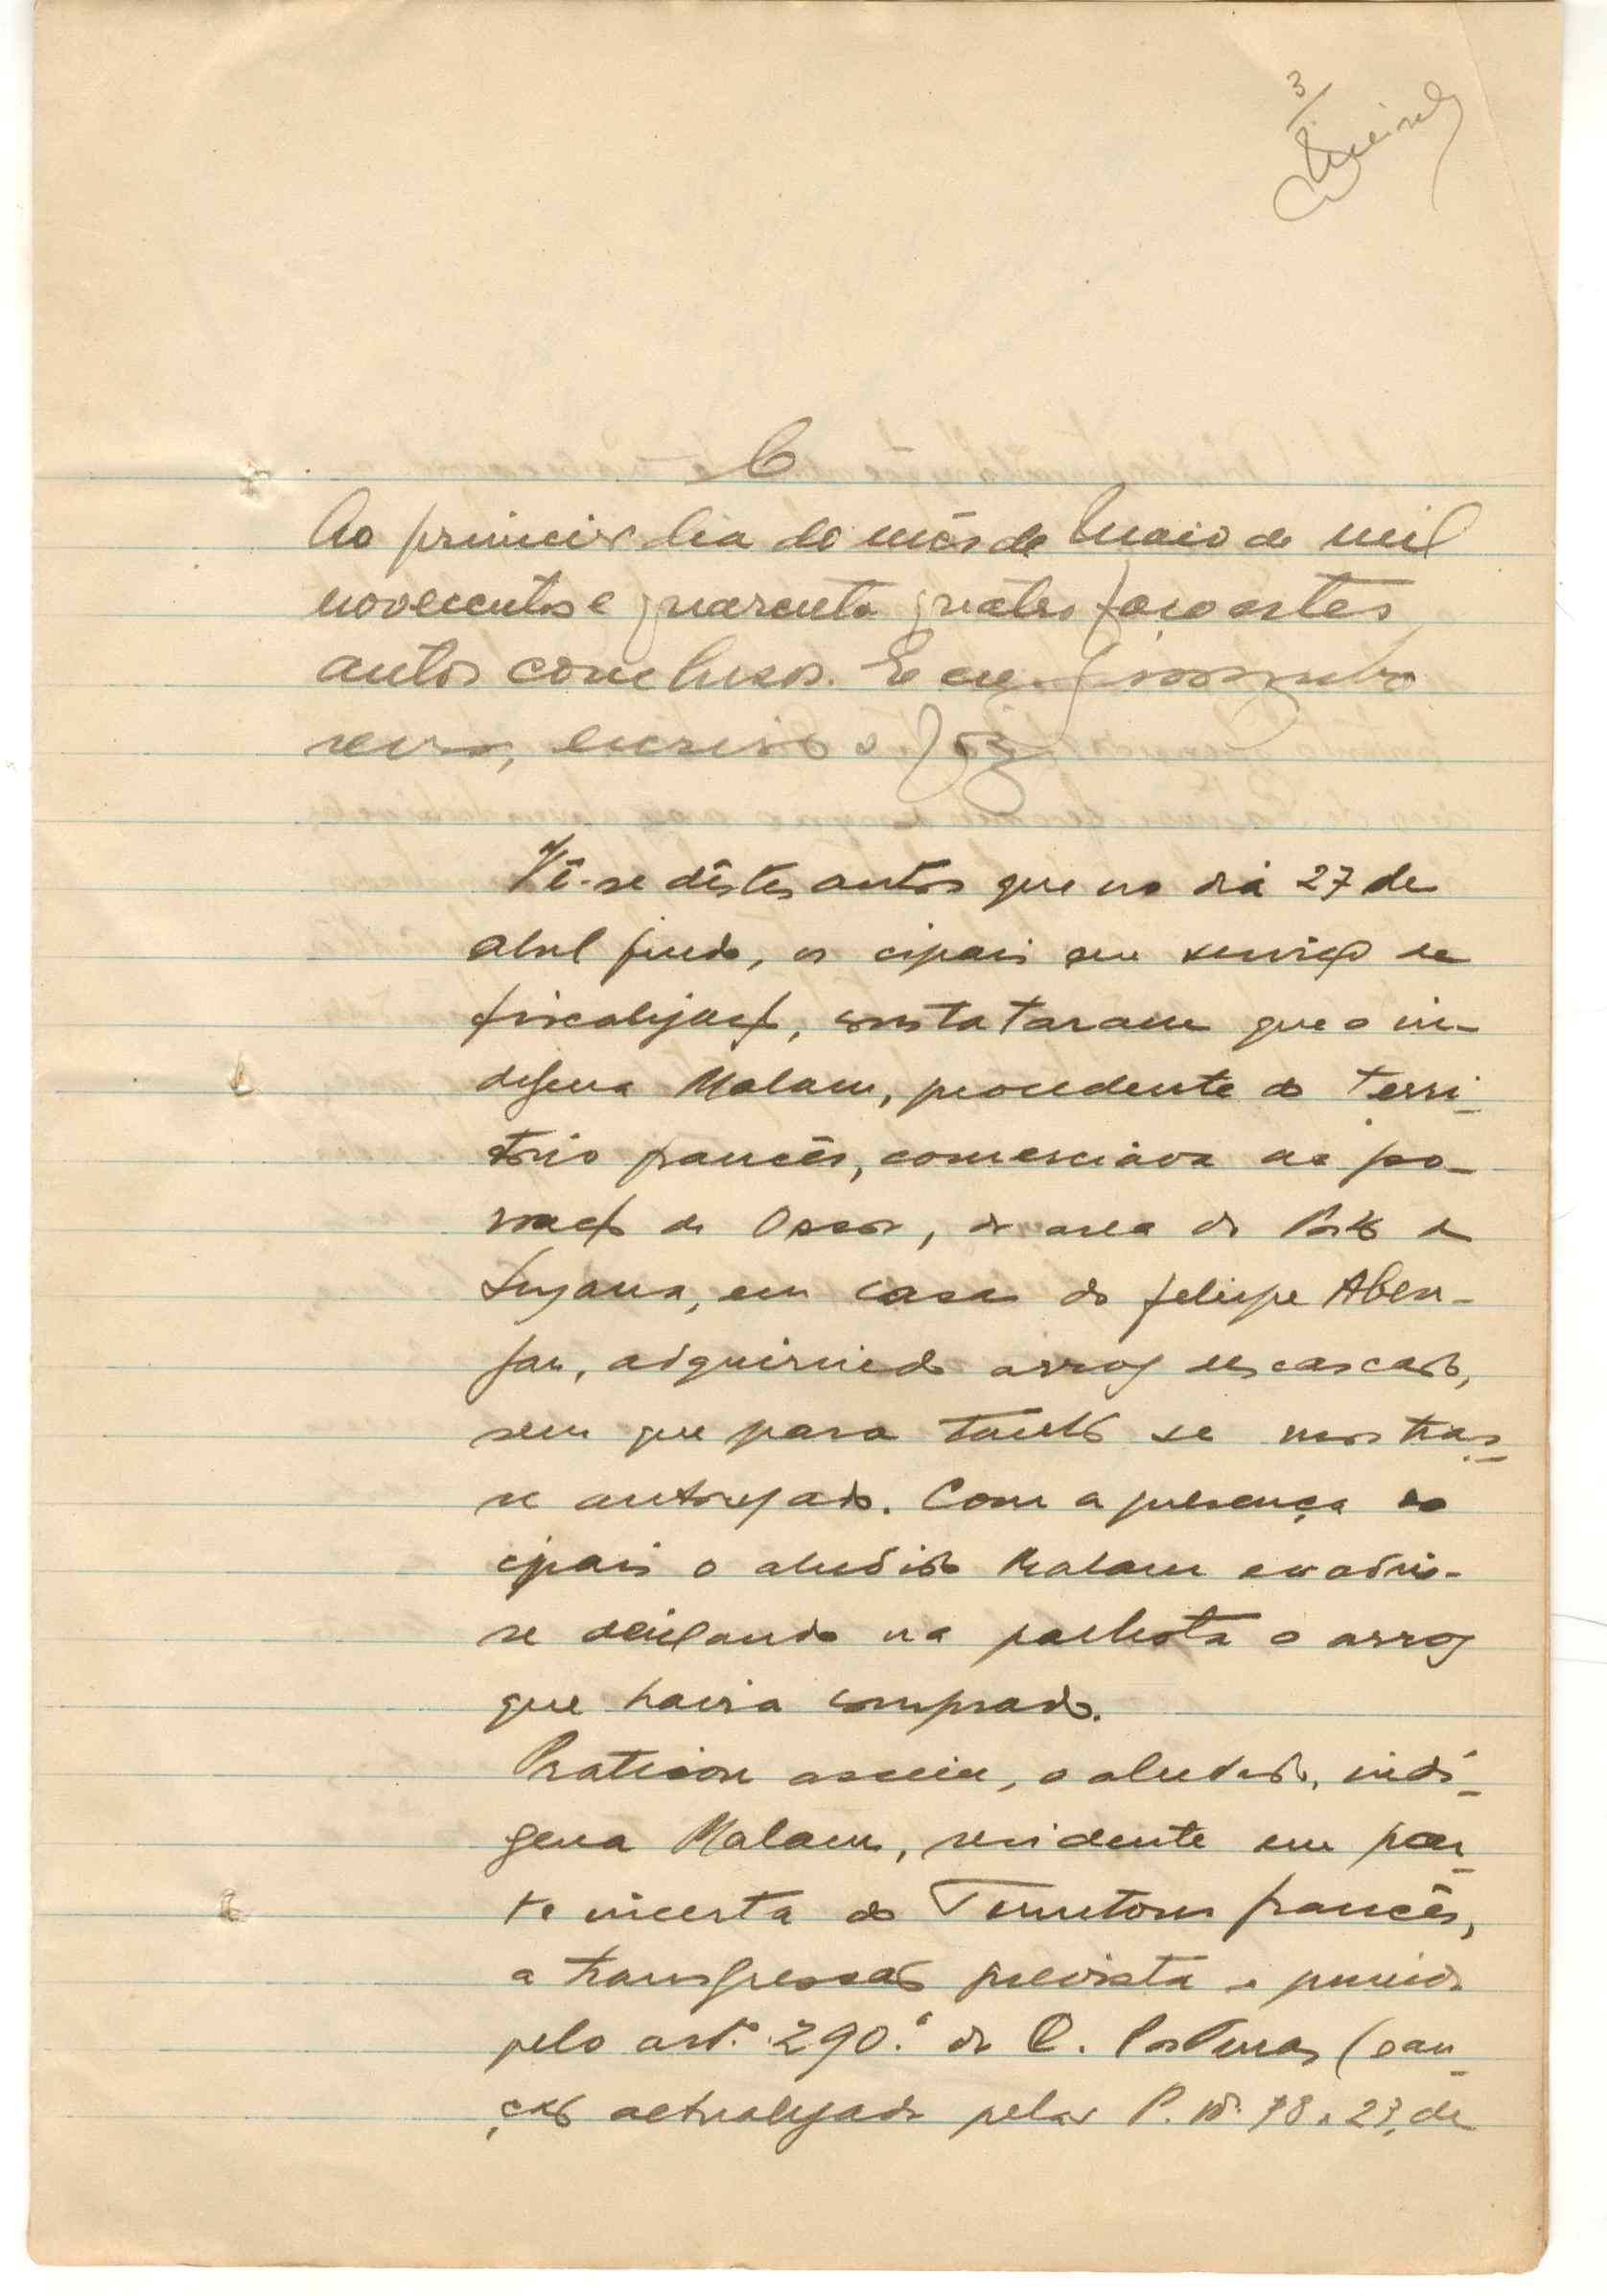 3
C
Ao primeiro dia do mês de Maio de mil
novecentos e quarenta quatro faço estes
autos conclusos. E eu,
escrivão o fiz
Vê-se dêstes autos que no dia 27 de
abril findo, os cipais em serviço de
fiscalização, constataram que o in-
dígena Malam, procedente do Terri-
tório francês, comerciava na po-
voação de Ossor, da area do Posto de
Suzana, em casa do felispe Aben-
far, adquirindo arroz descascado,
sem que para tanto se mostras-
se autorizado. Com a presença do
cipais o aludido Malam evadiu-
se deixando na palhota o arroz
que havia comprado.
Praticou assim, o aludido, indi-
gena Malam, residente em par-
te incerta do Territorio francês,
a transgressão prevista e punida
pelo art.º 290.º do C. Posturas (san-
ção actualizada pelas P. Nº. 78 e 27, de